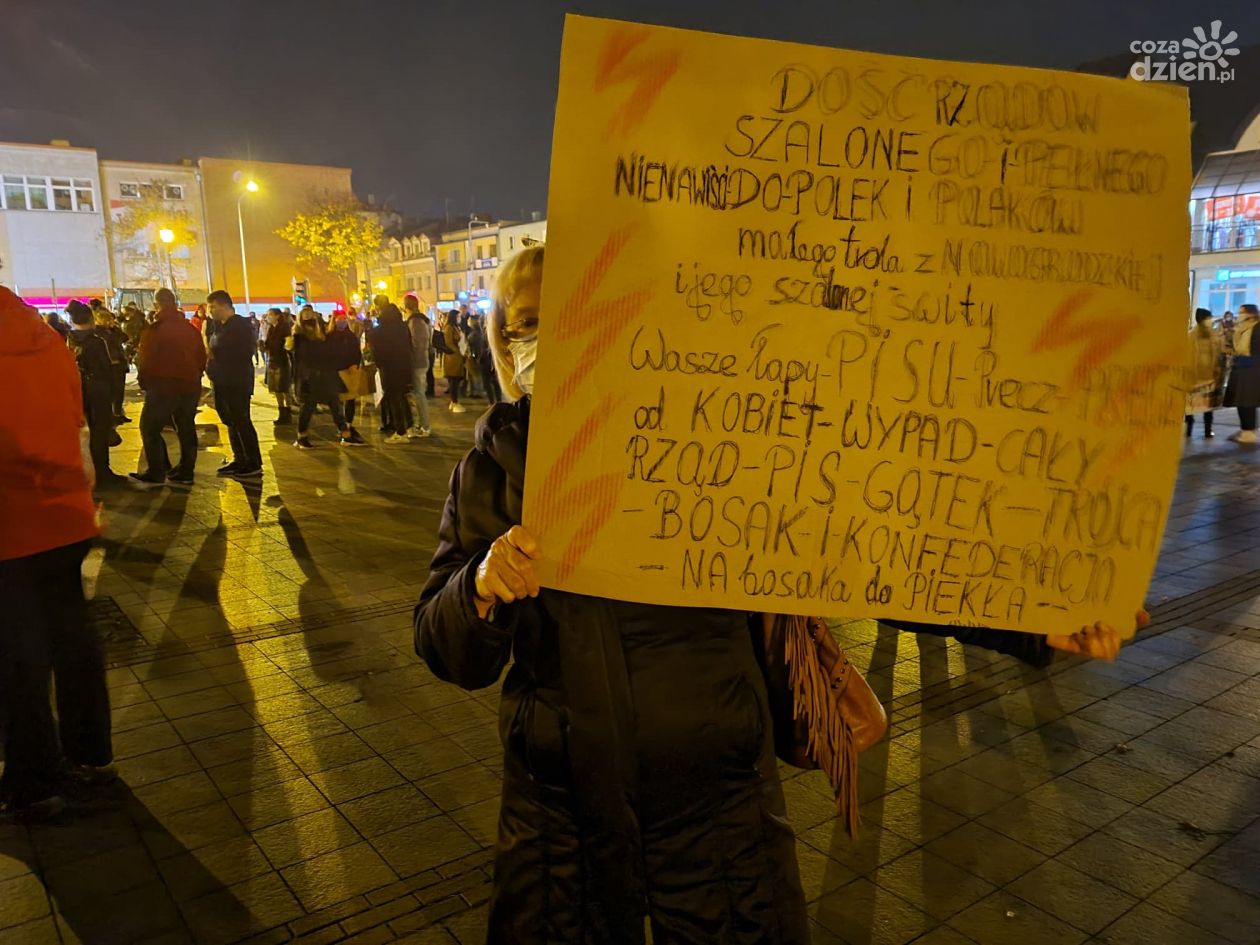 coza
dzien.pl
DOŚĆ RZĄDÓW
SZALONEGO-i-PEŁNEGO
NIENAWIŚCI-DO-POLEK i POLAKÓW
małego trola z NOWOGRODZKIEJ
i jego szalonej-świty
Wasze łapy-PISU-Precz-
od KOBIET-WYPAD-CAŁY
RZĄD-PiS-GĄTEK-TRÓJCA
-BOSAK-i-KONFEDERACJA
- NA bosaka do PIEKŁA -